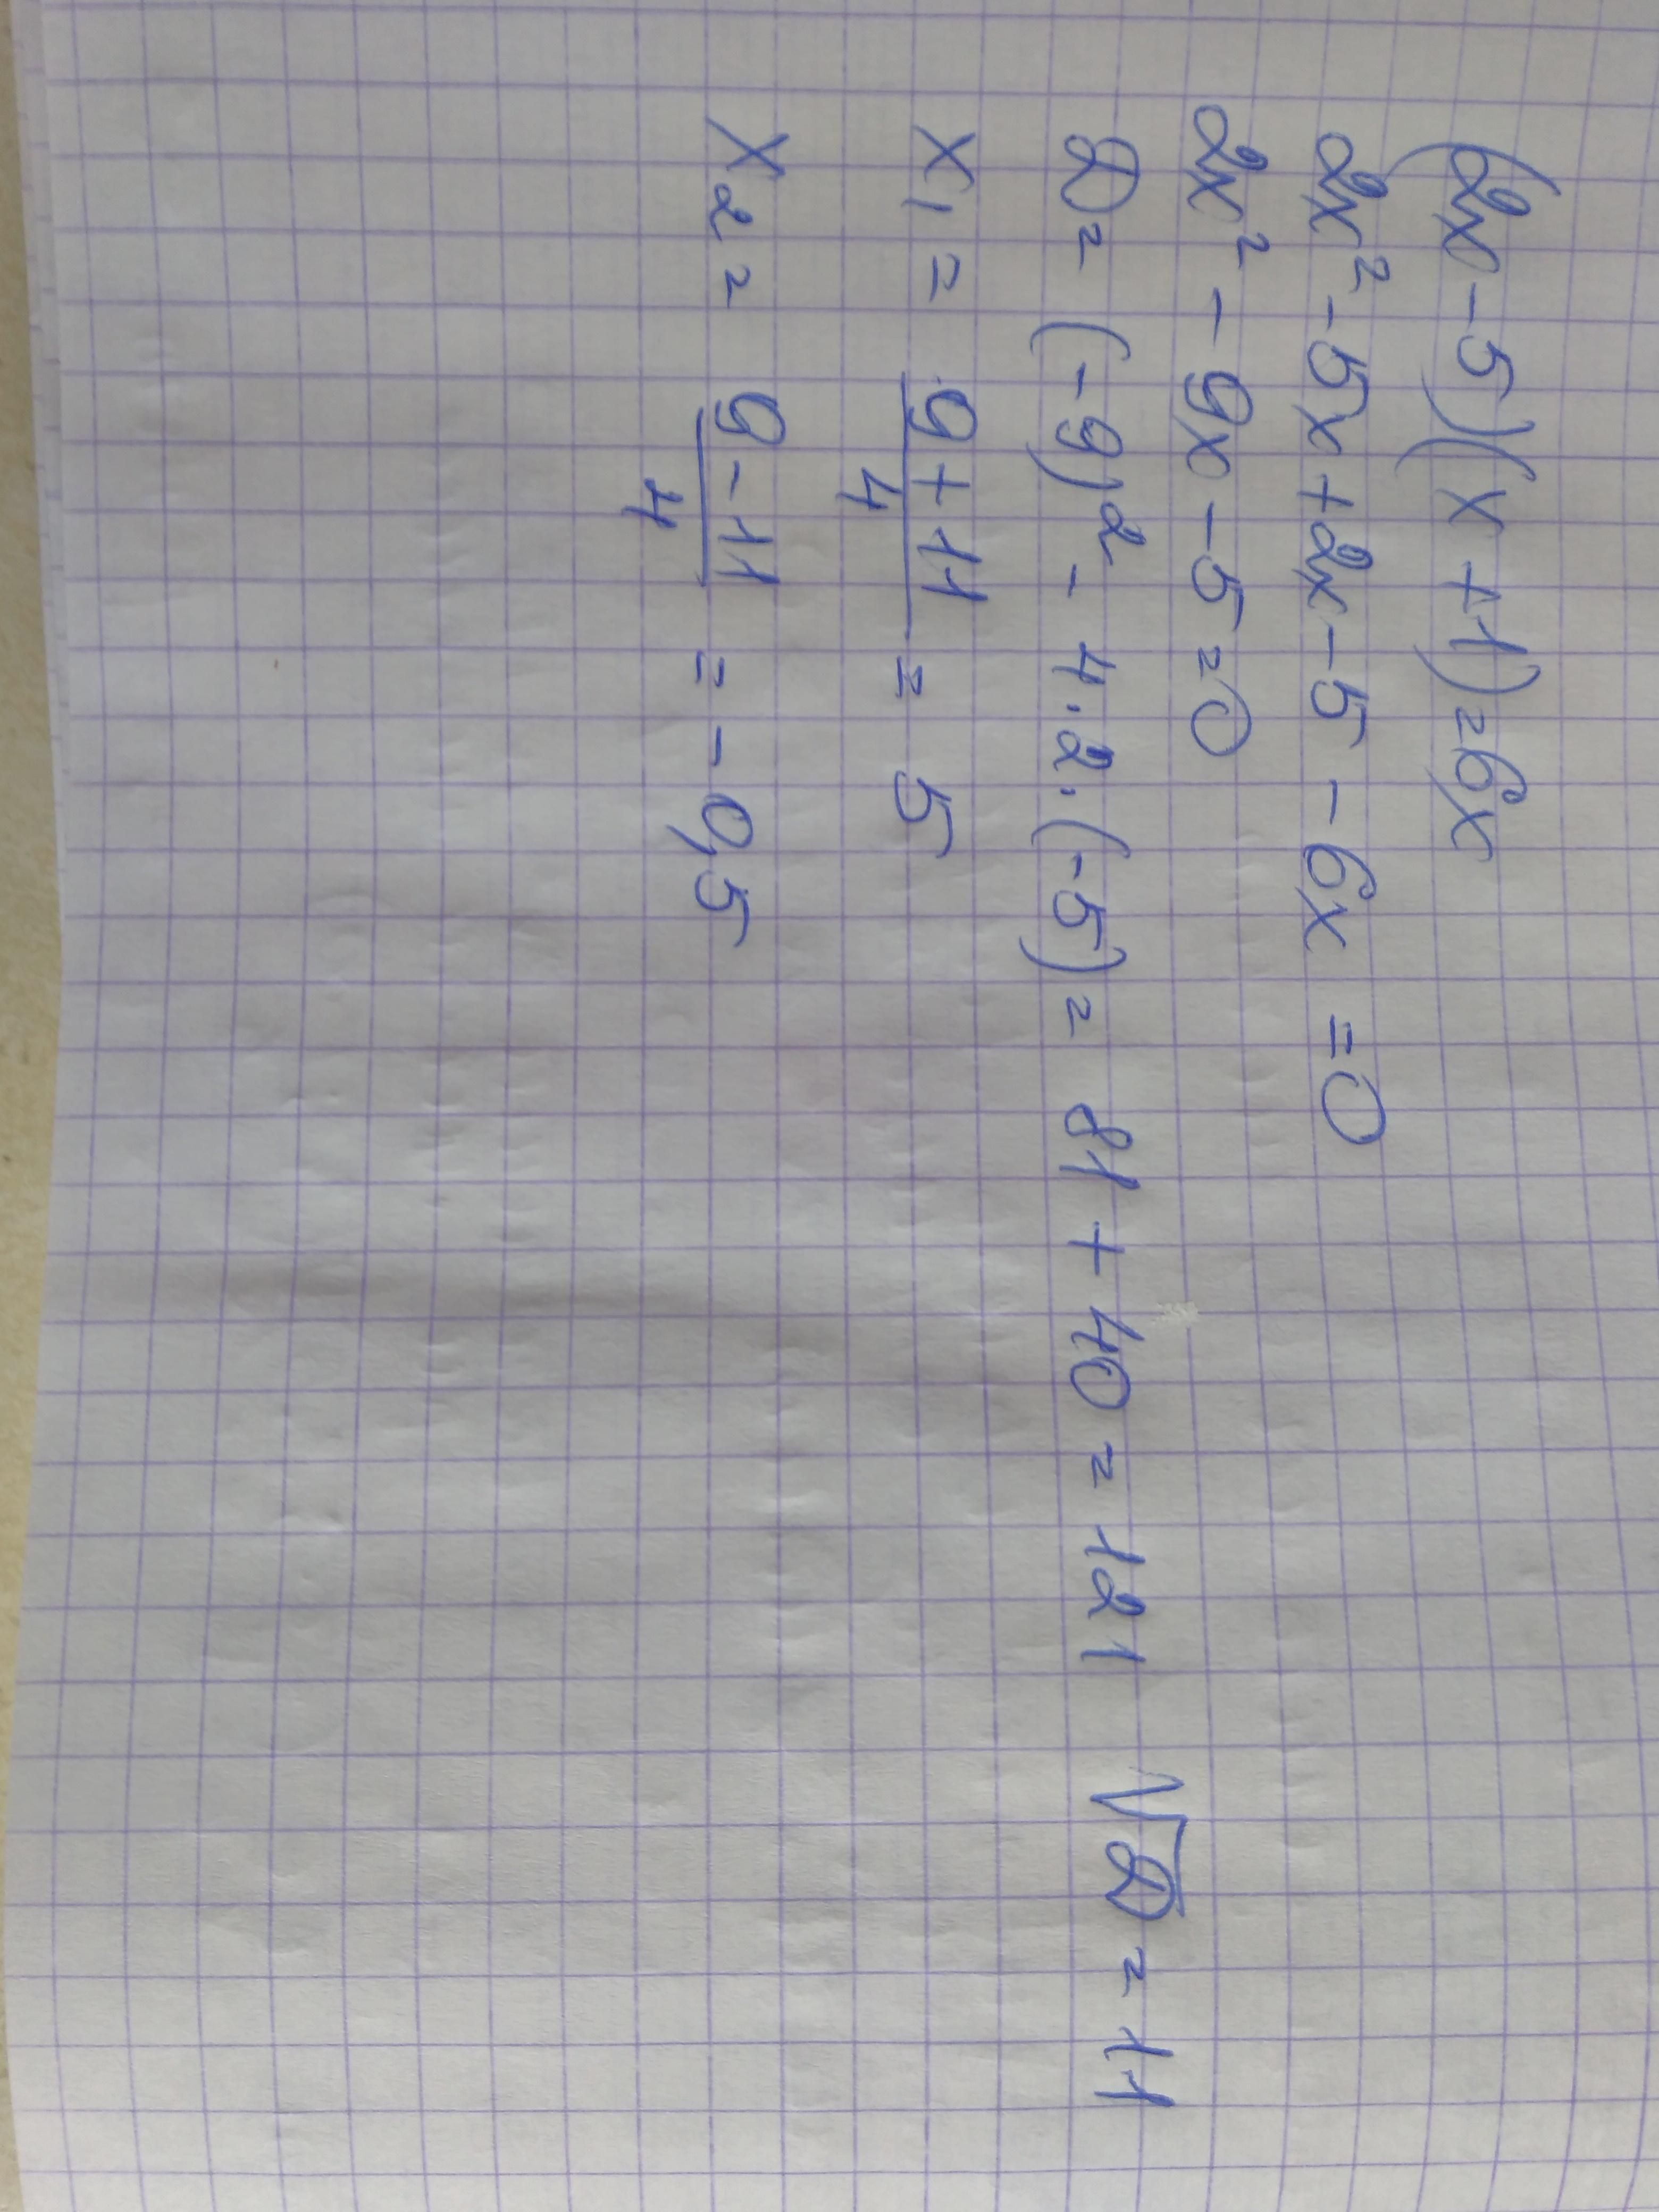 (2x-5)(x+1)=6x
2x²-5x+2x-5-6x=0
2x²-9x-5=0
D=(-9)²-4·2·(-5)=81+40=121 √D=11
x₁=(9+11)/4=5
x₂=(9-11)/4=-0,5